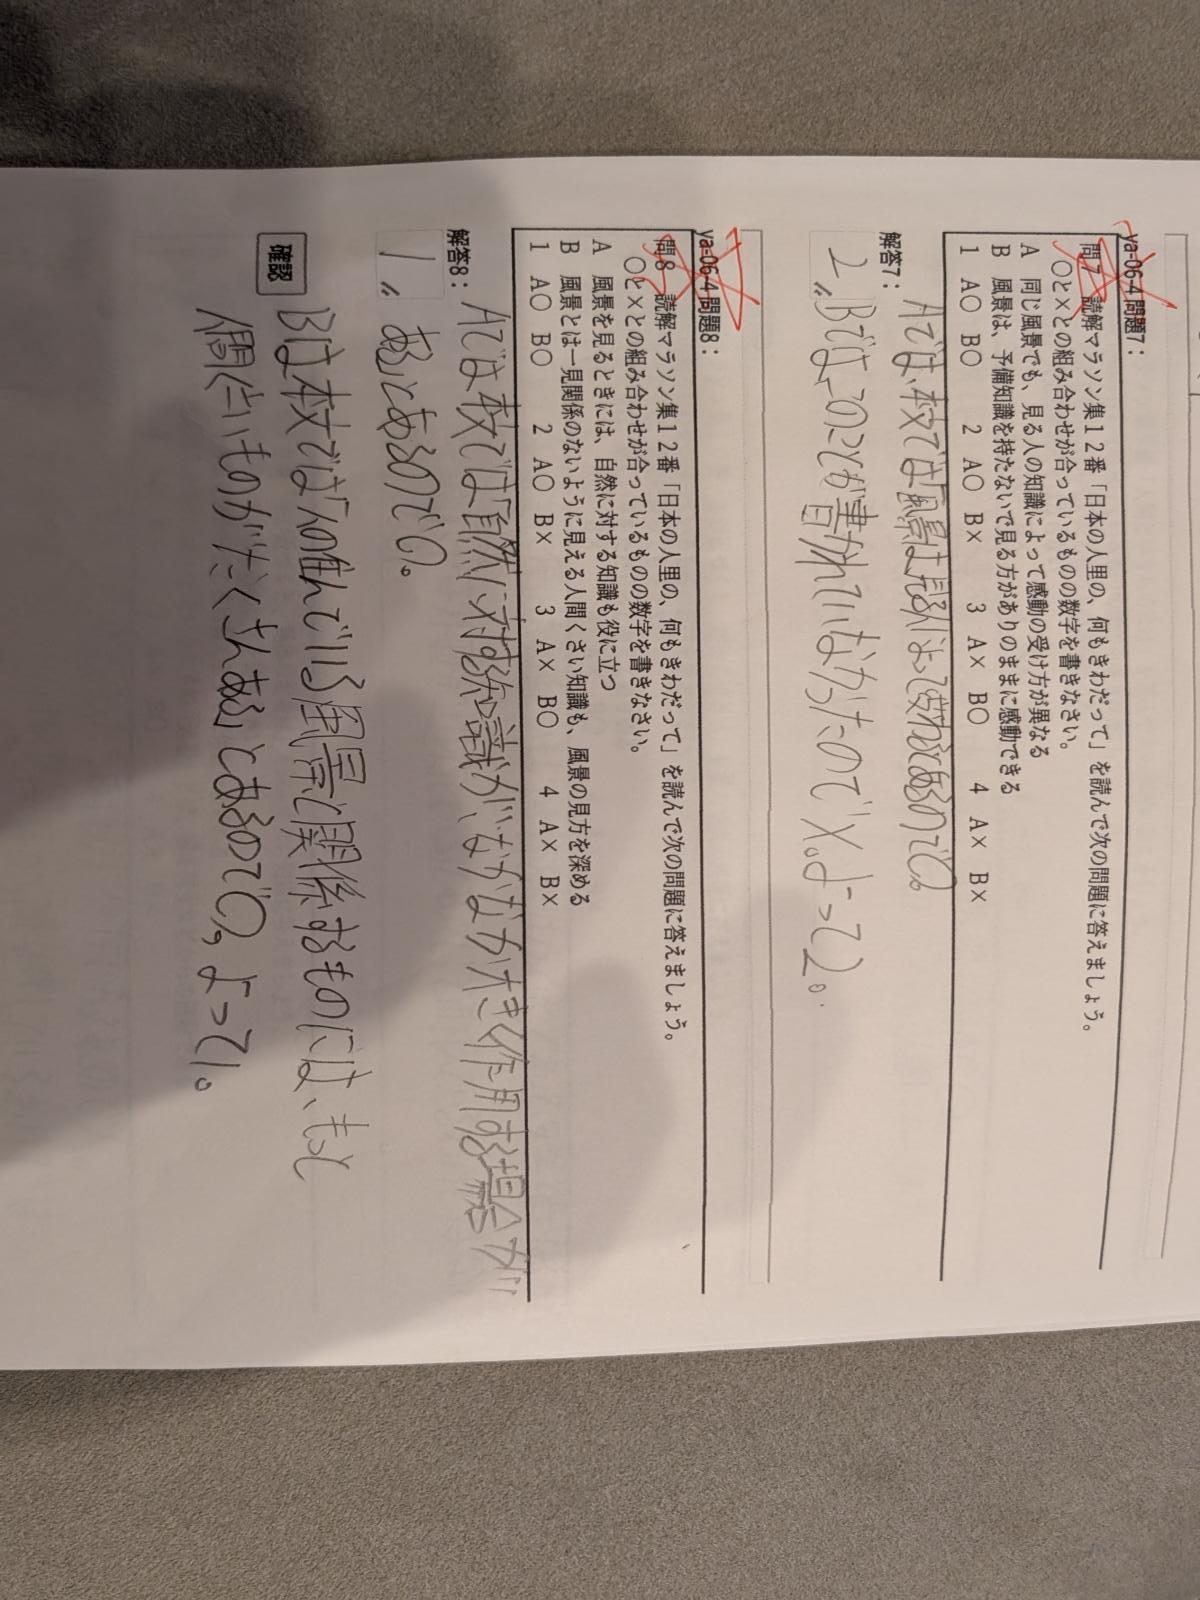 ya-06-4 問題7：
問7 読解マラソン集12番「日本の人里の、何もきわだって」を読んで次の問題に答えましょう。
○と×との組み合わせが合っているものの数字を書きなさい。
A 同じ風景でも、見る人の知識によって感動の受け方が異なる
B 風景は、予備知識を持たないで見る方がありのままに感動できる
1 A○ B○ 2 A○ B× 3 A× B○ 4 A× B×
解答7：
Aでは、本文では「風景は見る人によって変わるとあるので○。
2。Bでは、このことが書かれていなかったので×。よって2。
ya-06-4 問題8：
問8 読解マラソン集12番「日本の人里の、何もきわだって」を読んで次の問題に答えましょう。
○と×との組み合わせが合っているものの数字を書きなさい。
A 風景を見るときには、自然に対する知識も役に立つ
B 風景とは一見関係のないように見える人間くさい知識も、風景の見方を深める
1 A○ B○ 2 A○ B× 3 A× B○ 4 A× B×
解答8：
Aでは本文では「自然に対する知識が、なかなか大きく作用する場合が
1。
あるとあるので○。
Bは本文では「人の住んでいる風景に関係するものには、もっと
人間くさいものがたくさんあるとあるので○。よって1。
確認